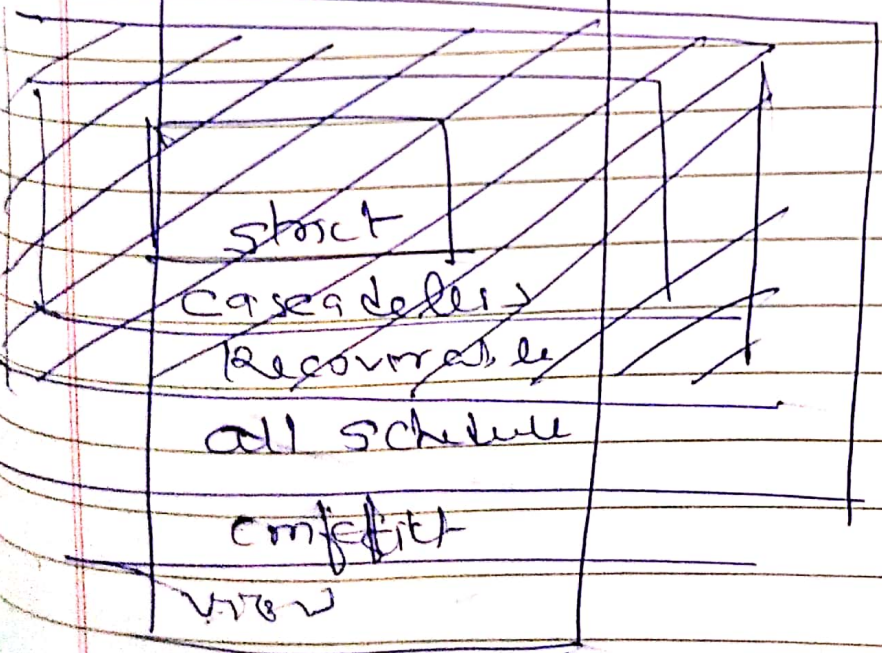 strict
cascadeless
Recoverable
all schedule
conflict
view